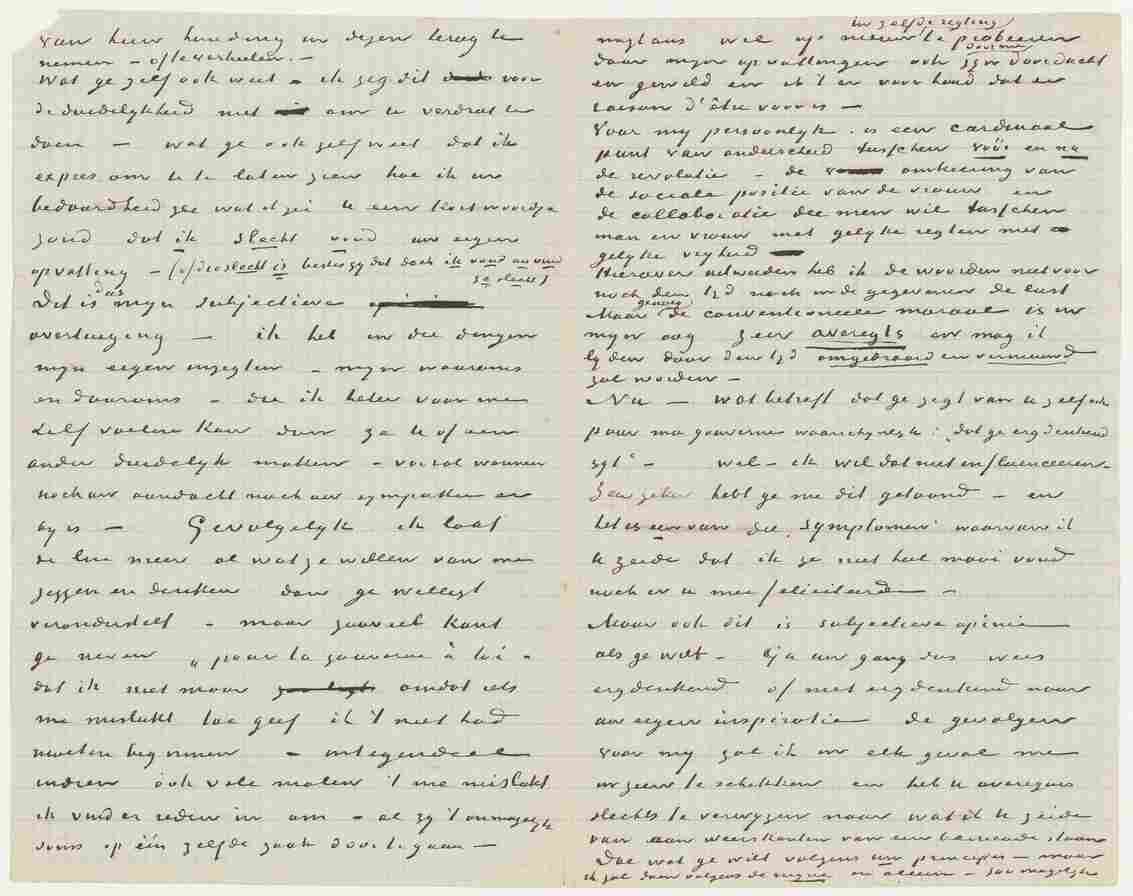 van hun houding en dezen terug te
nemen – of te verhelen. –
Wat ge zelf ook weet – ik zeg dit voor
de duidelijkheid niet om u verdriet te
doen – wat ge ook zelf weet dat ik
expres om U te laten zien hoe ik in
bedaardheid zee wat et zei U een kort woordje
zond dat ik slecht vond uw eigen
opvatting – (of die slecht is beslis ik dat doch ik vond en vind
ze slecht)
Dit is dus mijn subjectieve
overtuiging – ik heb in die dingen
mijn eigen inzigten – mijn waaroms
en daaroms – die ik beter voor me
zelf voelen kan dan ze U of een
ander duidelijk maken – vooral wanneer
noch uw aandacht noch uw sympathie er
bij is – Gevolgelijk ik laat
de lui meer al wat ze willen van me
zeggen en denken dan ge welligt
veronderstelt – maar zooveel kunt
ge nemen „pour ta gouverne à toi"
dat ik niet maar omdat iets
me mislukt toe geef ik 't niet had
moeten beginnen – integendeel
indien ook vele malen 't me mislukt
ik vind er reden in om – al zij 't onmogelijk
soms op één zelfde zaak door te gaan –
in zelfde rigting
nogtans wil op nieuw te probeeren
daar mijn opvattingen ook zijn doordacht
door mij
en gewild en ik 't er voor houd dat er
raison d'être voor is –
Voor mij persoonlijk is een cardinaal
punt van onderscheid tusschen vóór en na
de revolutie – de omkeering van
de sociale positie van de vrouw en
de collaboratie die men wil tusschen
man en vrouw met gelijke regten met
gelijke vrijheid
Hierover uitweiden heb ik de woorden niet voor
noch den tijd noch in de gegevenen de lust
genoeg
Maar de conventioneele moraal is in
mijn oog zeer averegts en mag ik
lijden door den tijd omgekeerd en vernieuwd
zal worden –
Nu – wat betreft dat ge zegt van U zelf ook
pour ma gouverne waarschijnlijk: „dat ge ergdenkend
zijt" – wel – ik wil dat niet influenceeren
Zeer zeker hebt ge me dit getoond – en
het is een van die „symptomen" waarvan ik
U zeide dat ik ze niet heel mooi vond
noch er U mee feliciteerde –
Maar ook dit is subjectieve opinie
als ge wilt – Ga uw gang dus wees
ergdenkend of niet ergdenkend naar
uw eigen inspiratie de gevolgen
voor mij zal ik in elk geval me
in zien te schikken en heb U overigens
slechts te verwijzen naar wat ik U zeide
van aan weerskanten van een barricade staan
Doe wat ge wilt volgens uw principes – maar
ik zal doen volgens de mijne en alleen – zoo mogelijk